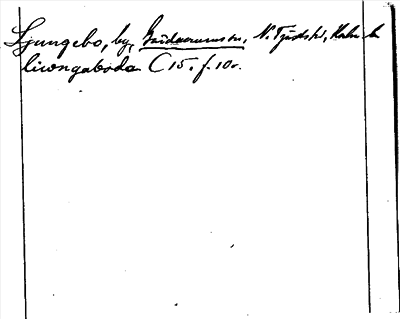 Ljungebo, by, Gärdserums sn, N. Tjusts hd, Kalm. l.
liwngaboda C 15. f. 10v.